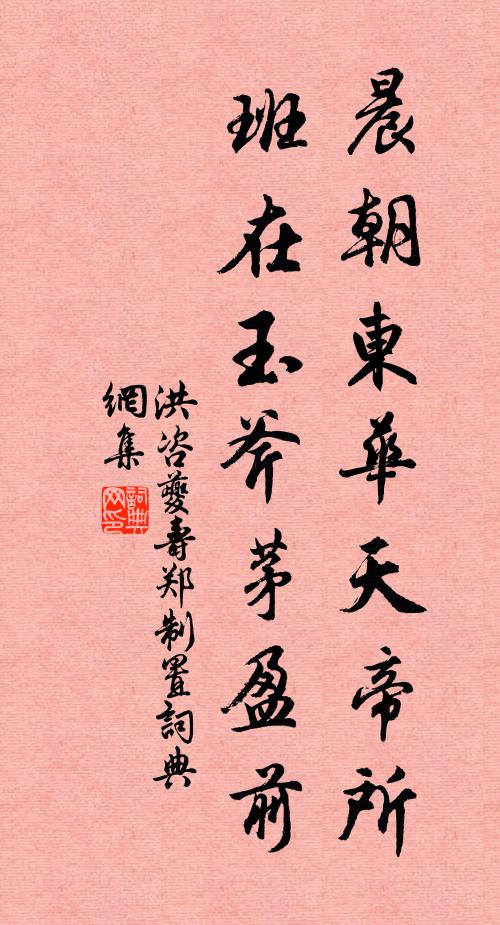 晨朝東華天帝所
班在玉斧茅盈前
洪咨夔壽郑制置詞典
網集
詞典
网印